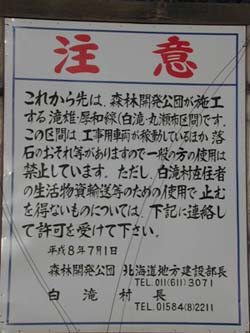 注意
これから先は、森林開発公団が施工
する滝雄・厚和線(白滝・丸瀬布区間)です。
この区間は、工事用車両が稼動しているほか落
石のおそれ等がありますので一般の方の使用は
禁止しています。ただし、白滝村在住者
の生活物資輸送等のための使用で止む
を得ないものについては、下記に連絡し
て許可を受けて下さい。
平成8年7月1日
森林開発公団 北海道地方建設部長
TEL.011(611)3071
白滝村長
TEL.01584(8)2211